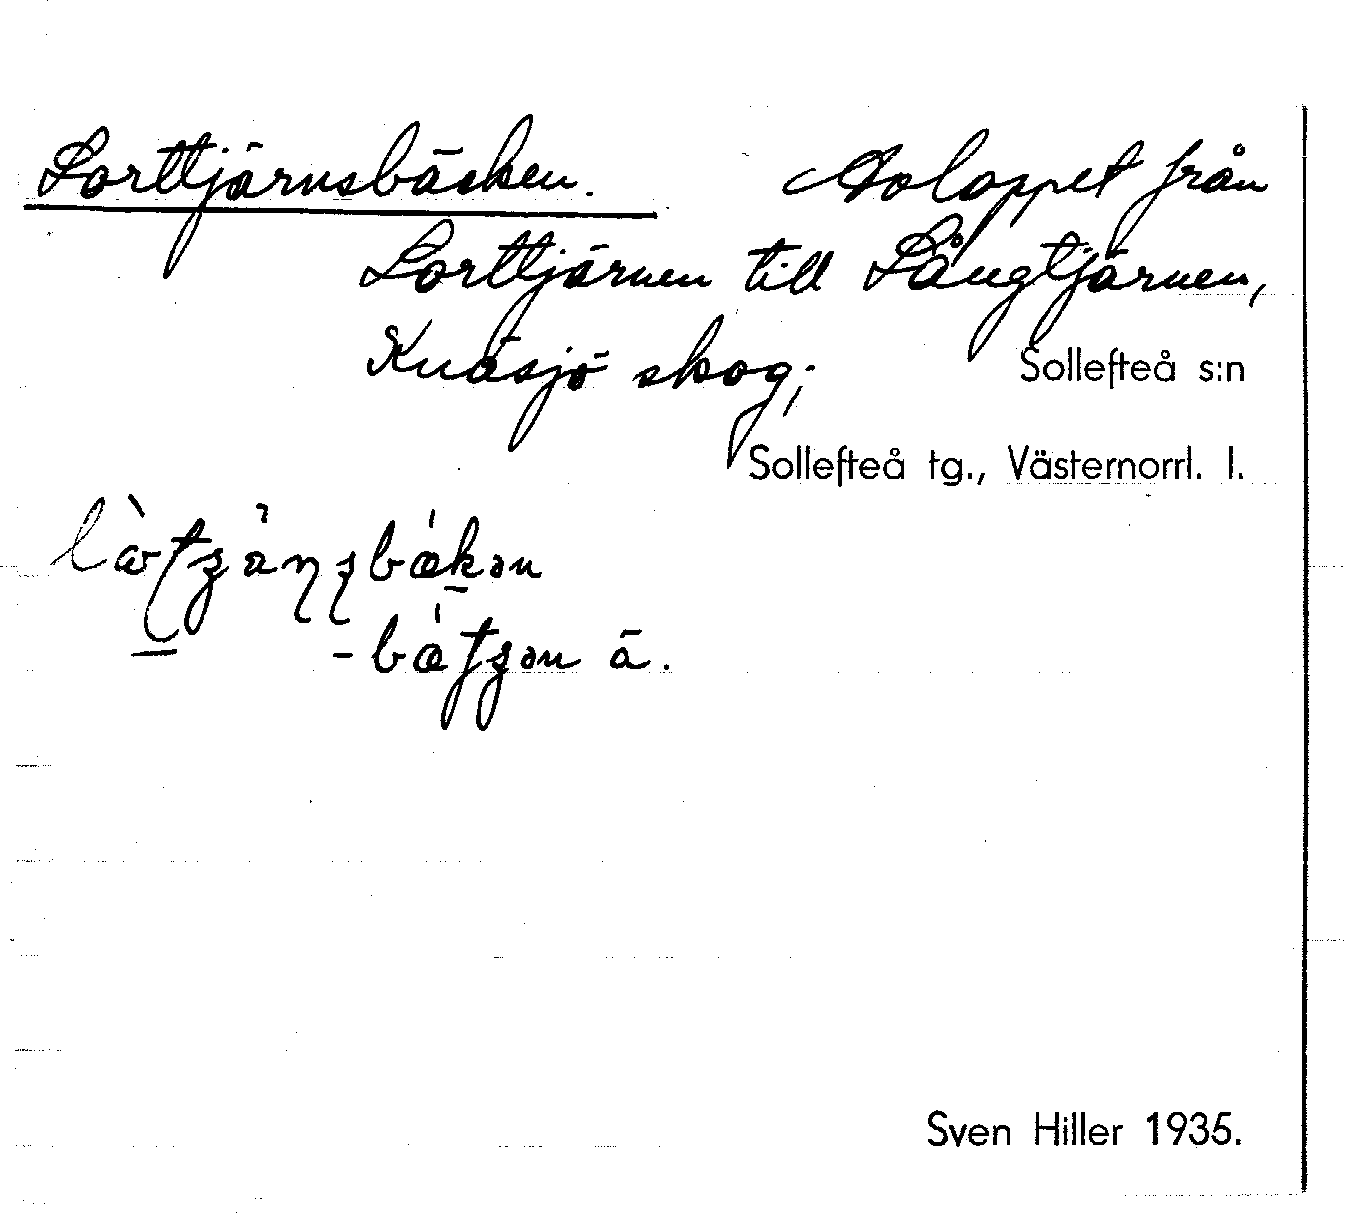 Lorttjärnsbäcken. Avloppet från
Lorttjärnen till Långtjärnen,
Knäsjö skog; Sollefteå s:n
Sollefteå tg., Västernorrl. l.
-
ā.
Sven Hiller 1935.